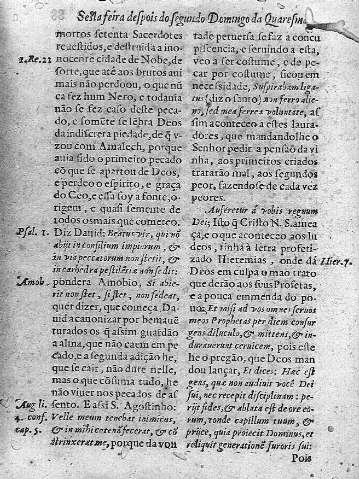 Sesta feira despois do segundo Domingo da Quaresm
mortos setenta Sacerdotes
reuestidos, e destruida a in
nocente cidade de Nobe, de
sorte, que atè aos brutos ani
mais não perdoou, o que nũ
ca fez hum Nero, e todauia
não se fez caso deste peca-
do, e sómẽte se lẽbra Deos
da indiscreta piedade, de q̃ v
zou com Amalech, porque
auia sido o primeiro pecado
cõ que se apartou de Deos,
e perdeo o espirito, e graça
do Ceo, e essa foy a fonte, o
rigem, e quasi semente de
todos os mais que cometeo.
Diz Dauid: Beatus vir, qui nõ
abijt in consilium impiorum, &
in via peccatorum non stetit, &
in cathedra pestilẽtiæ nõ sedit:
pondera Amobio, Si abie-
rit non stet, si stet, non sedeat,
quer dizer, que começa Da-
uid a canonizar por bemauẽ
turados os q̃ assim guardão
a alma, que não caem em pe
cado, e a segunda adição he,
que se cair, não dure nelle,
mas o que cõsuma tudo, he
não viuer nos pecados de as
sento. E assi S. Agostinho:
Velle meum tenebat inimicus,
& in mihi catenã fecerat, & cõ
strinxerat me, porque da von
2. Re. 22
Psal. 1.
Amob.
Aug li.
4. conf.
cap. 5.
tade peruersa se faz a concu
piscencia, e seruindo a esta,
veo a ser costume, e de pe-
car por costume, ficou em
necessidade, Suspirabam liga-
tus (diz o santo) non ferro alie-
no, sed mea ferrea voluntate, as
sim aconteceo a estes laura-
dores, que mandandolhe o
Senhor pedir a pensão da vi
nha, aos primeiros criados
tratarão mal, aos segundos
peor, fazendose de cada vez
peores.
Auferetur à vobis regnum
Dei; Isto q̃ Cristo N. S. amea
ça, o que aconteceo aos Iu
deos, tinha à letra profeti-
zado Hieremias, onde dá
Deos em culpa o mao trato
que derão aos seus Profetas,
e a pouca emmenda do po-
uo: Et misi ad vos omnes seruos
meos Prophetas per diem consur
gens diluculo, & mittens, & in-
durauerunt ceruicem, pois este
he o pregão, que Deos man
dou lançar, Et dices: Hæc est
gens, quæ non audiuit vocẽ Dei
sui, nec recepit disciplinam: pe-
rijt fides, & ablata est de ore eo-
rum, tonde capillum tuum, &
proijce, quia proiecit Dominus, et
reliquit generationẽ furoris sui:
Hier. 7.
Pois